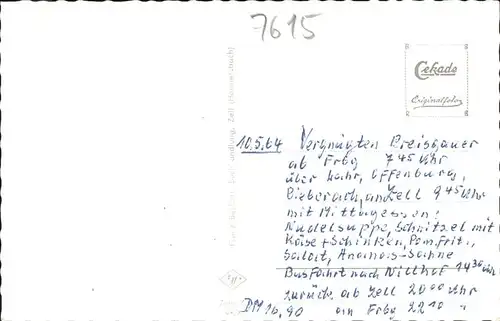 7615
Cekade
Originalfoto
10.5.64 Vergnügten Breisgauer
ab Frbg 7 45 Uhr
über Lahr, Offenburg,
Bieberach, an Zell 9 45 Uhr
mit Mittagessen!
Nudelsuppe, Schnitzel mit
Käse + Schinken, Pom. frit.,
Salat, Ananas-Sahne
Busfahrt nach Nillhof 14 30 Uhr
zurück ab Zell 20 00 Uhr
DM 16,90 an Frbg 22 10 "